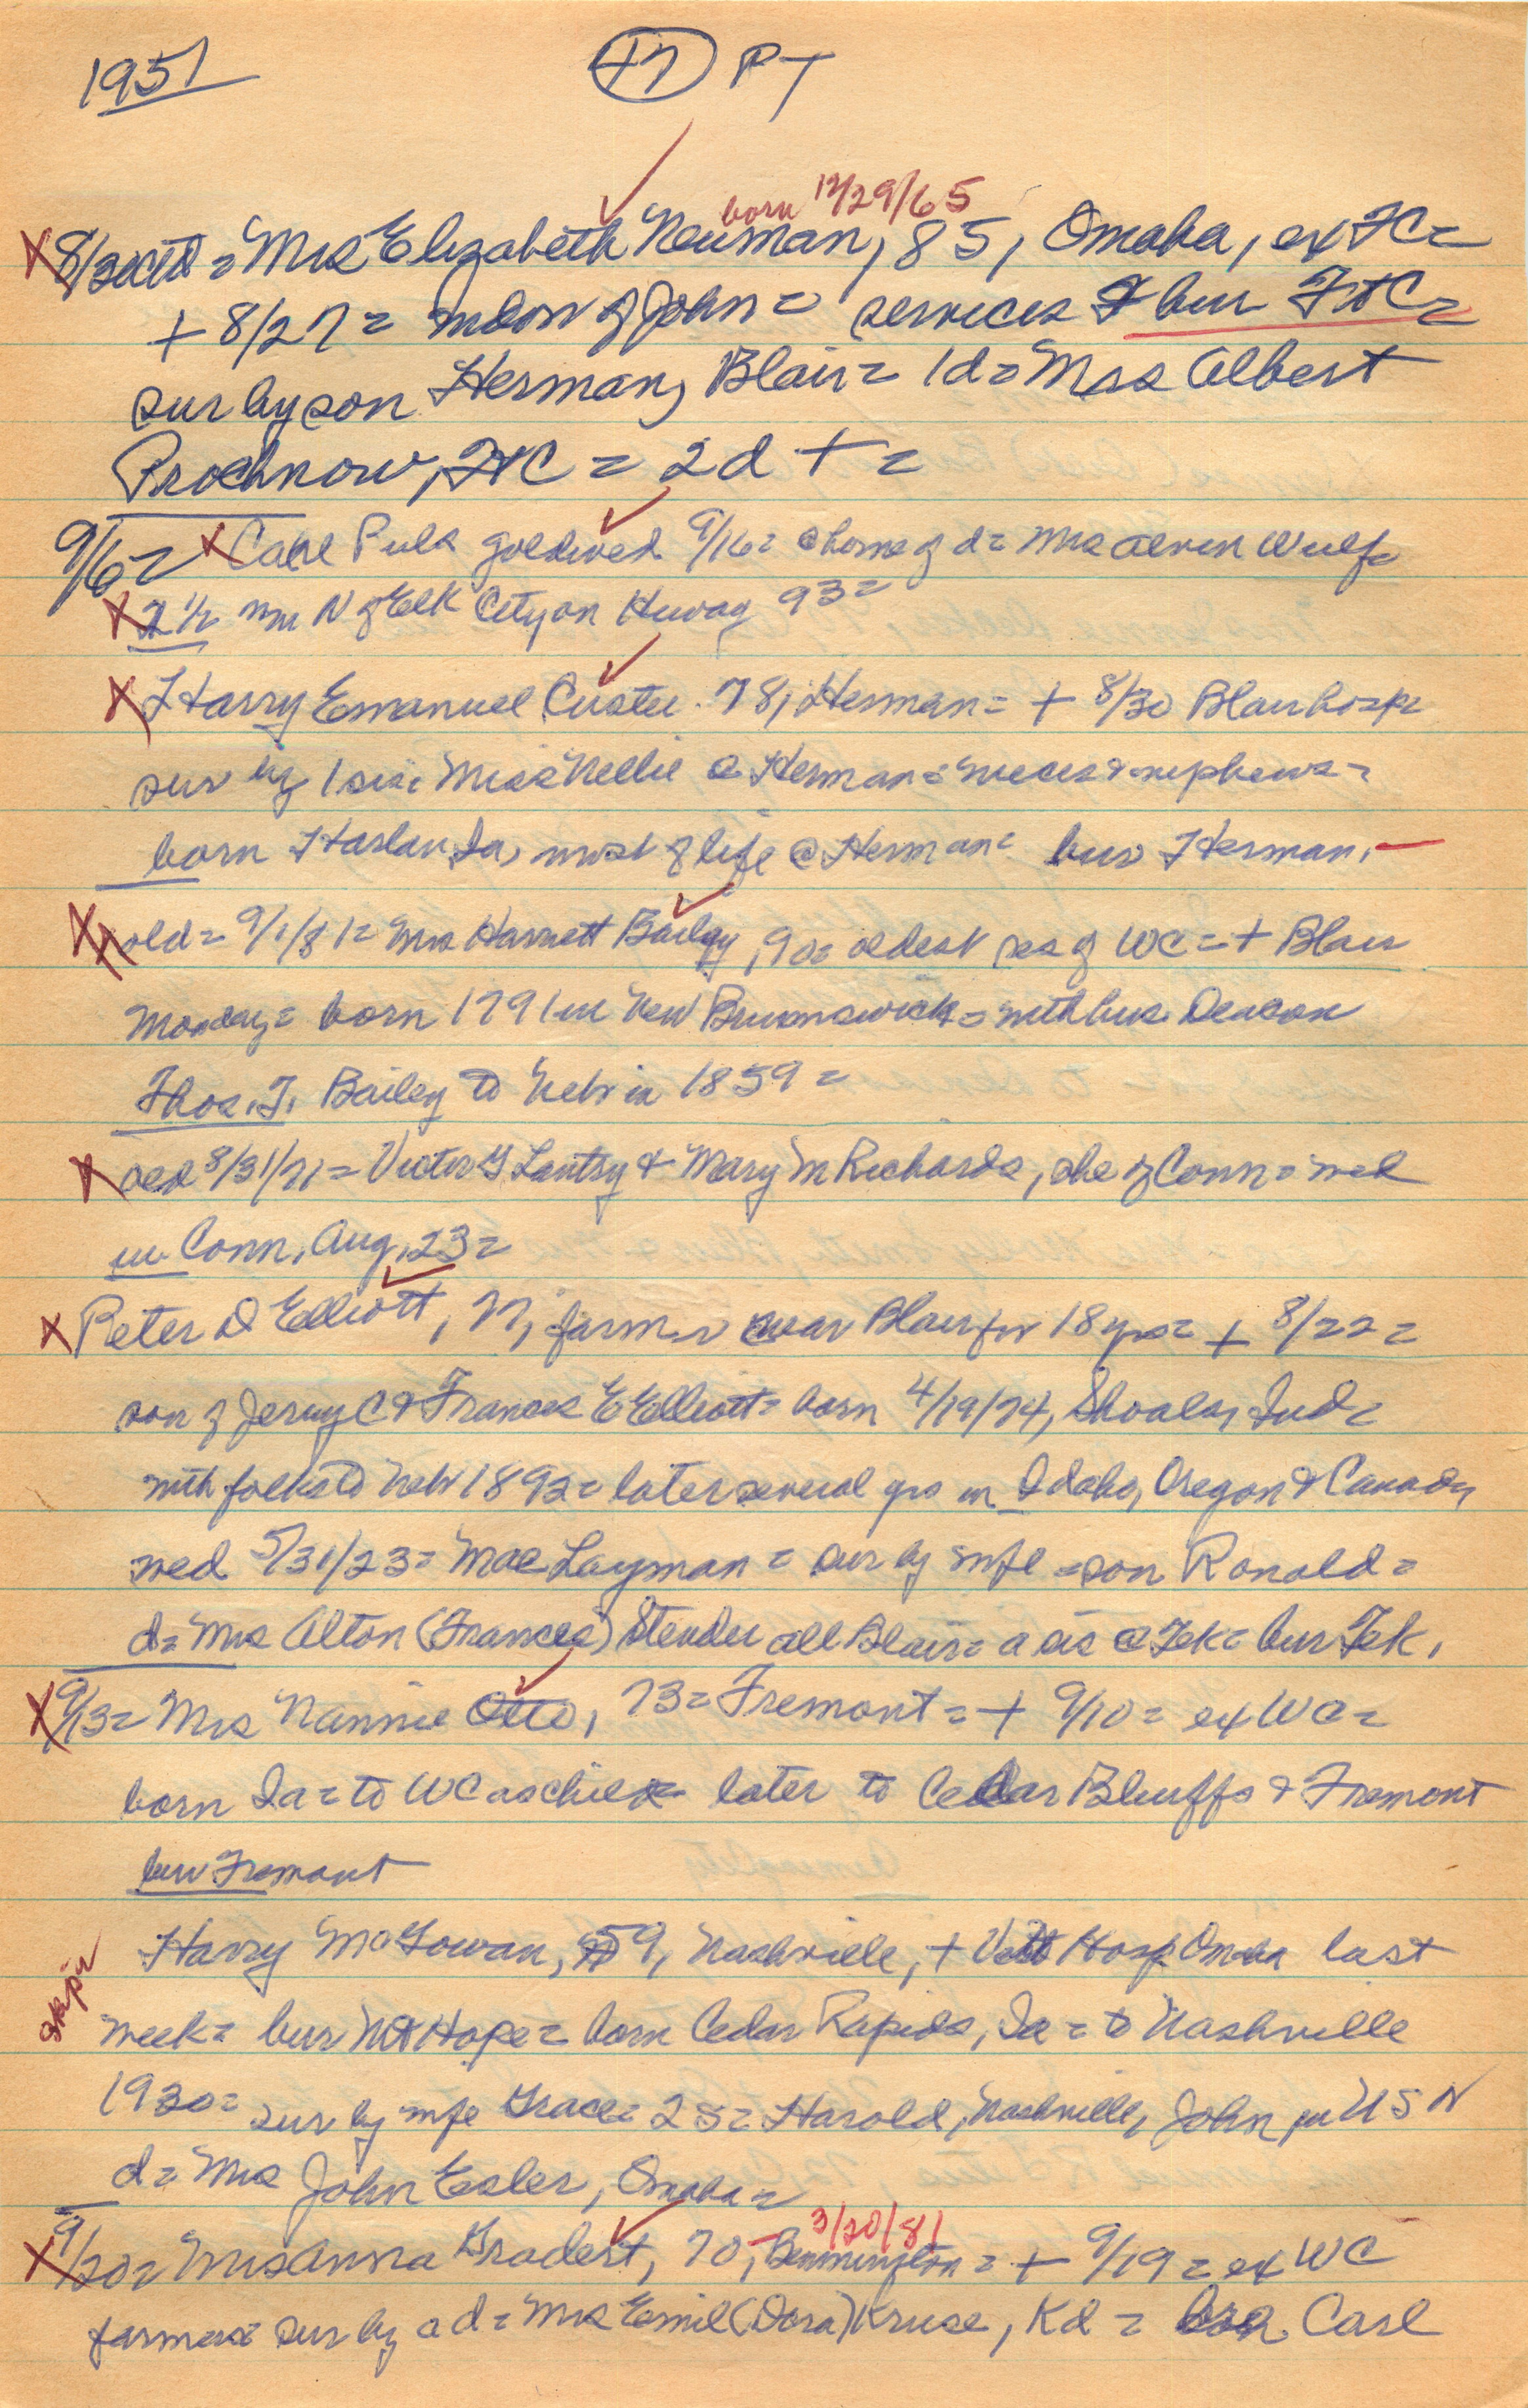 1951
47 PT
born 12/29/65
8/30 = Mrs Elizabeth Neuman, 85, Omaha, ex FC =
+ 8/27 = widow of John = services & bur FtC =
sur by son Herman, Blair = 1d = Mrs Albert
Prochnow, FtC = 2d + =
9/6 = Carl Puls goldwed 9/16 = @ home of d = Mrs Alvin Wulf =
2 1/2 mi N of Elk City on Hiway 93 =
Harry Emanuel Custer 78, Herman = + 8/30 Blair hosp =
sur by 1 sis = Miss Nellie @ Herman = nieces & nephews =
born Harlan, Ia, most of life @ Herman = bur Herman.
old = 9/1/81 = Mrs Harriett Bailey, 90 = oldest res of WC = + Blair
Monday = born 1791 in New Brunswick = with hus Deacon
Thos. T. Bailey to Nebr in 1859 =
old 8/31/71 = Victor G Lantry & Mary M Richards, she of Conn = wed
in Conn, Aug. 23 =
Peter D Elliott, 77, farmer near Blair for 18 yrs = + 8/22 =
son of Jerry C & Frances E Elliott = born 4/19/74, Shoals, Ind =
with folks to Nebr 1892 = later several yrs in Idaho, Oregon & Canada,
wed 5/31/23 = Mae Layman = sur by wife = son Ronald =
d = Mrs Alton (Frances) Stender all Blair = a sis @ Tek = bur Tek.
9/13 = Mrs Nannie Otto, 73 = Fremont = + 9/10 = ex WC =
born Ia = to WC as child = later to Cedar Bluffs & Fremont
bur Fremont
Harry McGowan, 59, Nashville, + Vet Hosp Omaha last
skip
week = bur Mt Hope = born Cedar Rapids, Ia = to Nashville
1930 = sur by wife Grace = 2s = Harold, Nashville, John in USN
d = Mrs John Esler, Omaha =
3/20/81
9/20 = Mrs Anna Gradert, 70, Bennington = + 9/19 = ex WC
farmers = sur by a d = Mrs Emil (Dora) Kruse, Kd = Carl